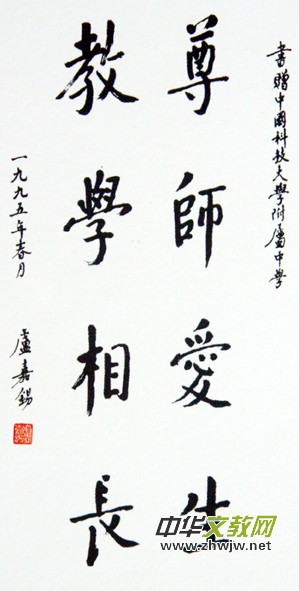 書贈中國科技大學附屬中學
尊師愛生
教學相長
一九九五年春月
盧嘉錫
中华文教网
www.zhwjw.net